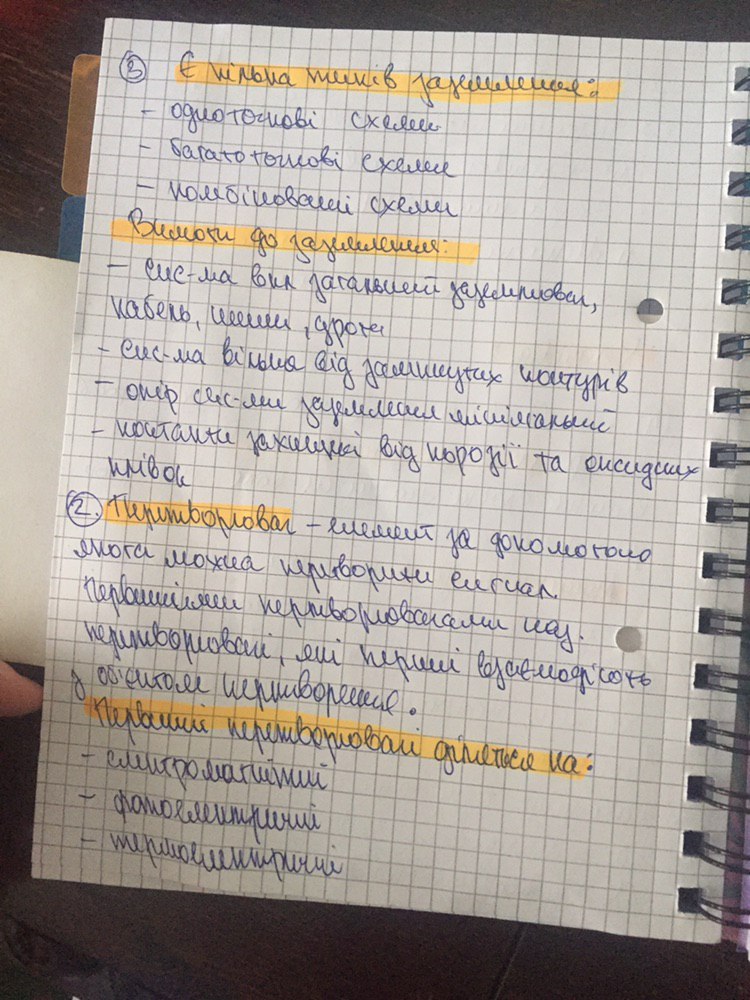 3 Є кілька типів заземлення:
- одноточкові схеми
- багатоточкові схеми
- комбіновані схеми
Вимоги до заземлення:
- сис-ма вик загальний заземлювач,
кабель, шини, дроти
- сис-ма вільна від замкнутих контурів
- опір сис-ми заземлення мінімальний
- контакти захищені від корозії та оксидних
плівок
2. Перетворювач - елемент за допомогою
якого можна перетворити сигнал.
Первинними перетворювачами наз.
перетворювачі, які перші взаємодіють
з об'єктом перетворення.
Первинні перетворювачі діляться на:
- електромагнітний
- фотоелектричні
- термоелектричні